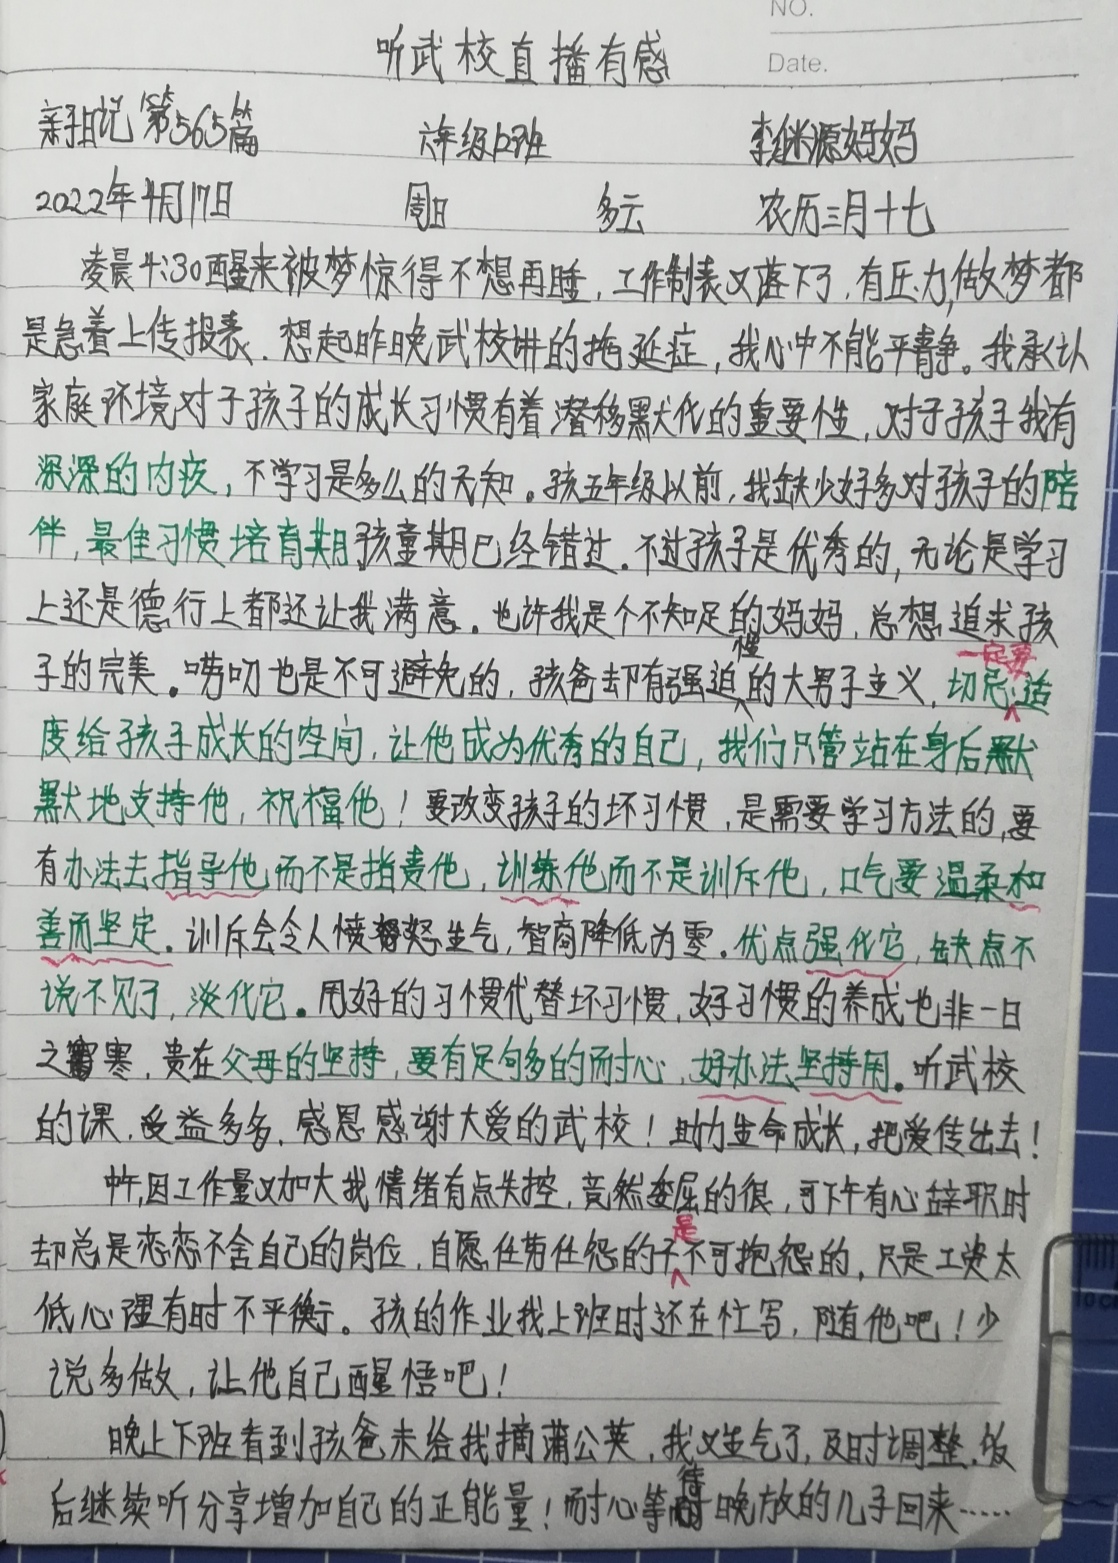 NO.
Date.
听武校直播有感
亲子日记第565篇 六年级12班 李继源妈妈
2022年4月17日 周日 多云 农历三月十七
凌晨4:30醒来被梦惊得不想再睡，工作制表又落下了，有压力，做梦都
是急着上传报表。想起昨晚武校讲的拖延症，我心中不能平静。我承认
家庭环境对于孩子的成长习惯有着潜移默化的重要性，对于孩子我有
深深的内疚，不学习是多么的无知。孩五年级以前，我缺少好多对孩子的陪
伴，最佳习惯培育期孩童期已经错过。不过孩子是优秀的，无论是学习
上还是德行上都还让我满意。也许我是个不知足的妈妈，总想追求孩
子的完美。唠叨也是不可避免的，孩爸却有强迫性的大男子主义，切忌：一定要适
度给孩子成长的空间，让他成为优秀的自己，我们只管站在身后默
默地支持他，祝福他！要改变孩子的坏习惯，是需要学习方法的，要
有办法去指导他而不是指责他，训练他而不是训斥他，口气要温柔和
善而坚定。训斥会令人愤怒生气，智商降低为零。优点强化它，缺点不
说不见了，淡化它。用好的习惯代替坏习惯，好习惯的养成也非一日
之寒，贵在父母的坚持，要有足够多的耐心，好办法坚持用。听武校
的课，受益多多，感恩感谢大爱的武校！助力生命成长，把爱传出去！
中午因工作量又加大我情绪有点失控，竟然委屈的很，可下午有心辞职时
却总是恋恋不舍自己的岗位，自愿任劳任怨的干是不可抱怨的，只是工资太
低心理有时不平衡。孩的作业我上班时还在忙写，随他吧！少
说多做，让他自己醒悟吧！
晚上下班看到孩爸未给我摘蒲公英，我又生气了，及时调整，饭
后继续听分享增加自己的正能量！耐心等待晚放的儿子回来……